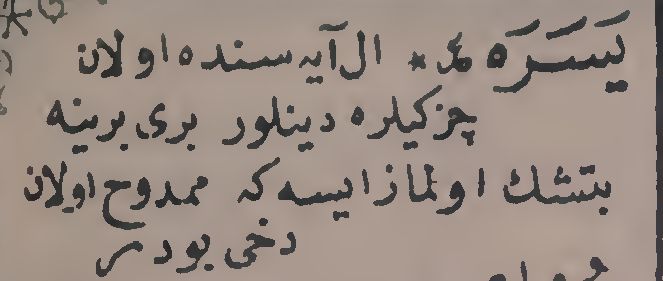 يَسَرَه * ال آيه سنده اولان
چزكيلره دينلور برى برينه
بتشك اولماز ايسه كه ممدوح اولان
دخى بودر